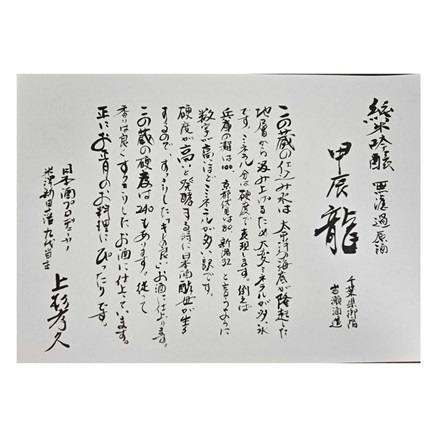 純米吟醸 無濾過原酒
甲辰 龍
千葉県御宿
岩瀬酒造
この蔵の仕込み水は太平洋の海底が隆起した
地層から汲み上げるため大変ミネラルが多い水
です。ミネラル分は硬度で表現します。例えば
兵庫の灘は100、京都伏見は80、新潟32と言うように
数字が高いほどミネラルが多い訳です。
硬度が高いと発酵する時に日本酒酵母が生き
するので、すっきりしたキレの良いお酒に仕上ります。
この蔵の硬度は240もあります。従って
香りは良くすっきりしたお酒に仕上っています。
正にお肴のお料理にぴったりです。
日本酒プロデューサー
九代当主
上杉孝久